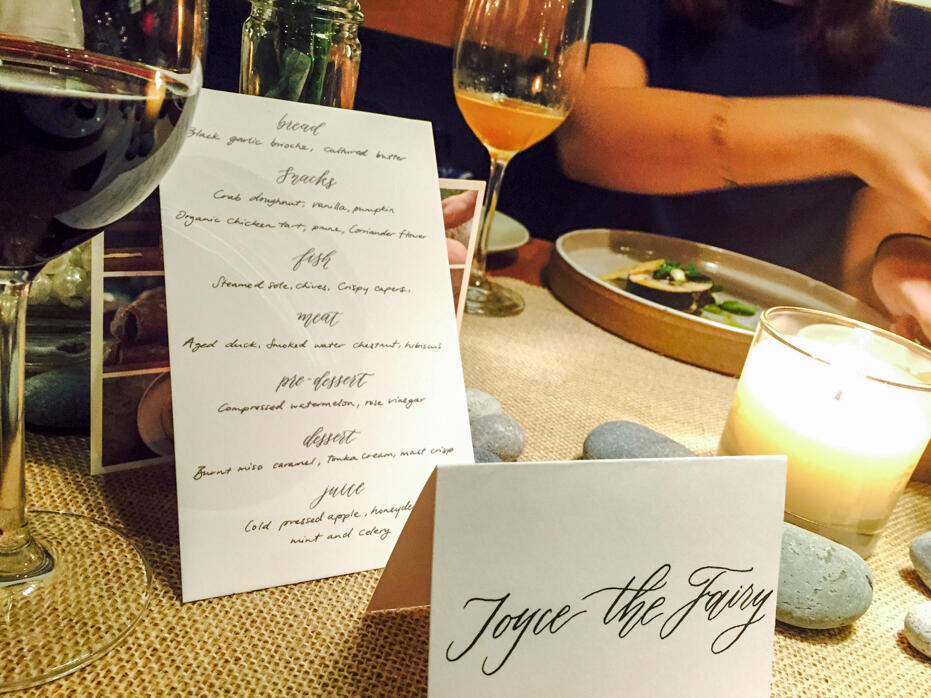 bread
Black garlic brioche, cultured butter
Snacks
Crab doughnut, vanilla, pumpkin
Organic chicken tart, prune, Coriander flower
fish
Steamed sole, chives, Crispy capers.
meat
Aged duck, Smoked water chestnut, hibiscus
pre-dessert
Compressed watermelon, rose vinegar
dessert
Burnt miso caramel, Tonka cream, malt crisp
juice
Cold pressed apple, honeyde
mint and celery
Joyce the Fairy